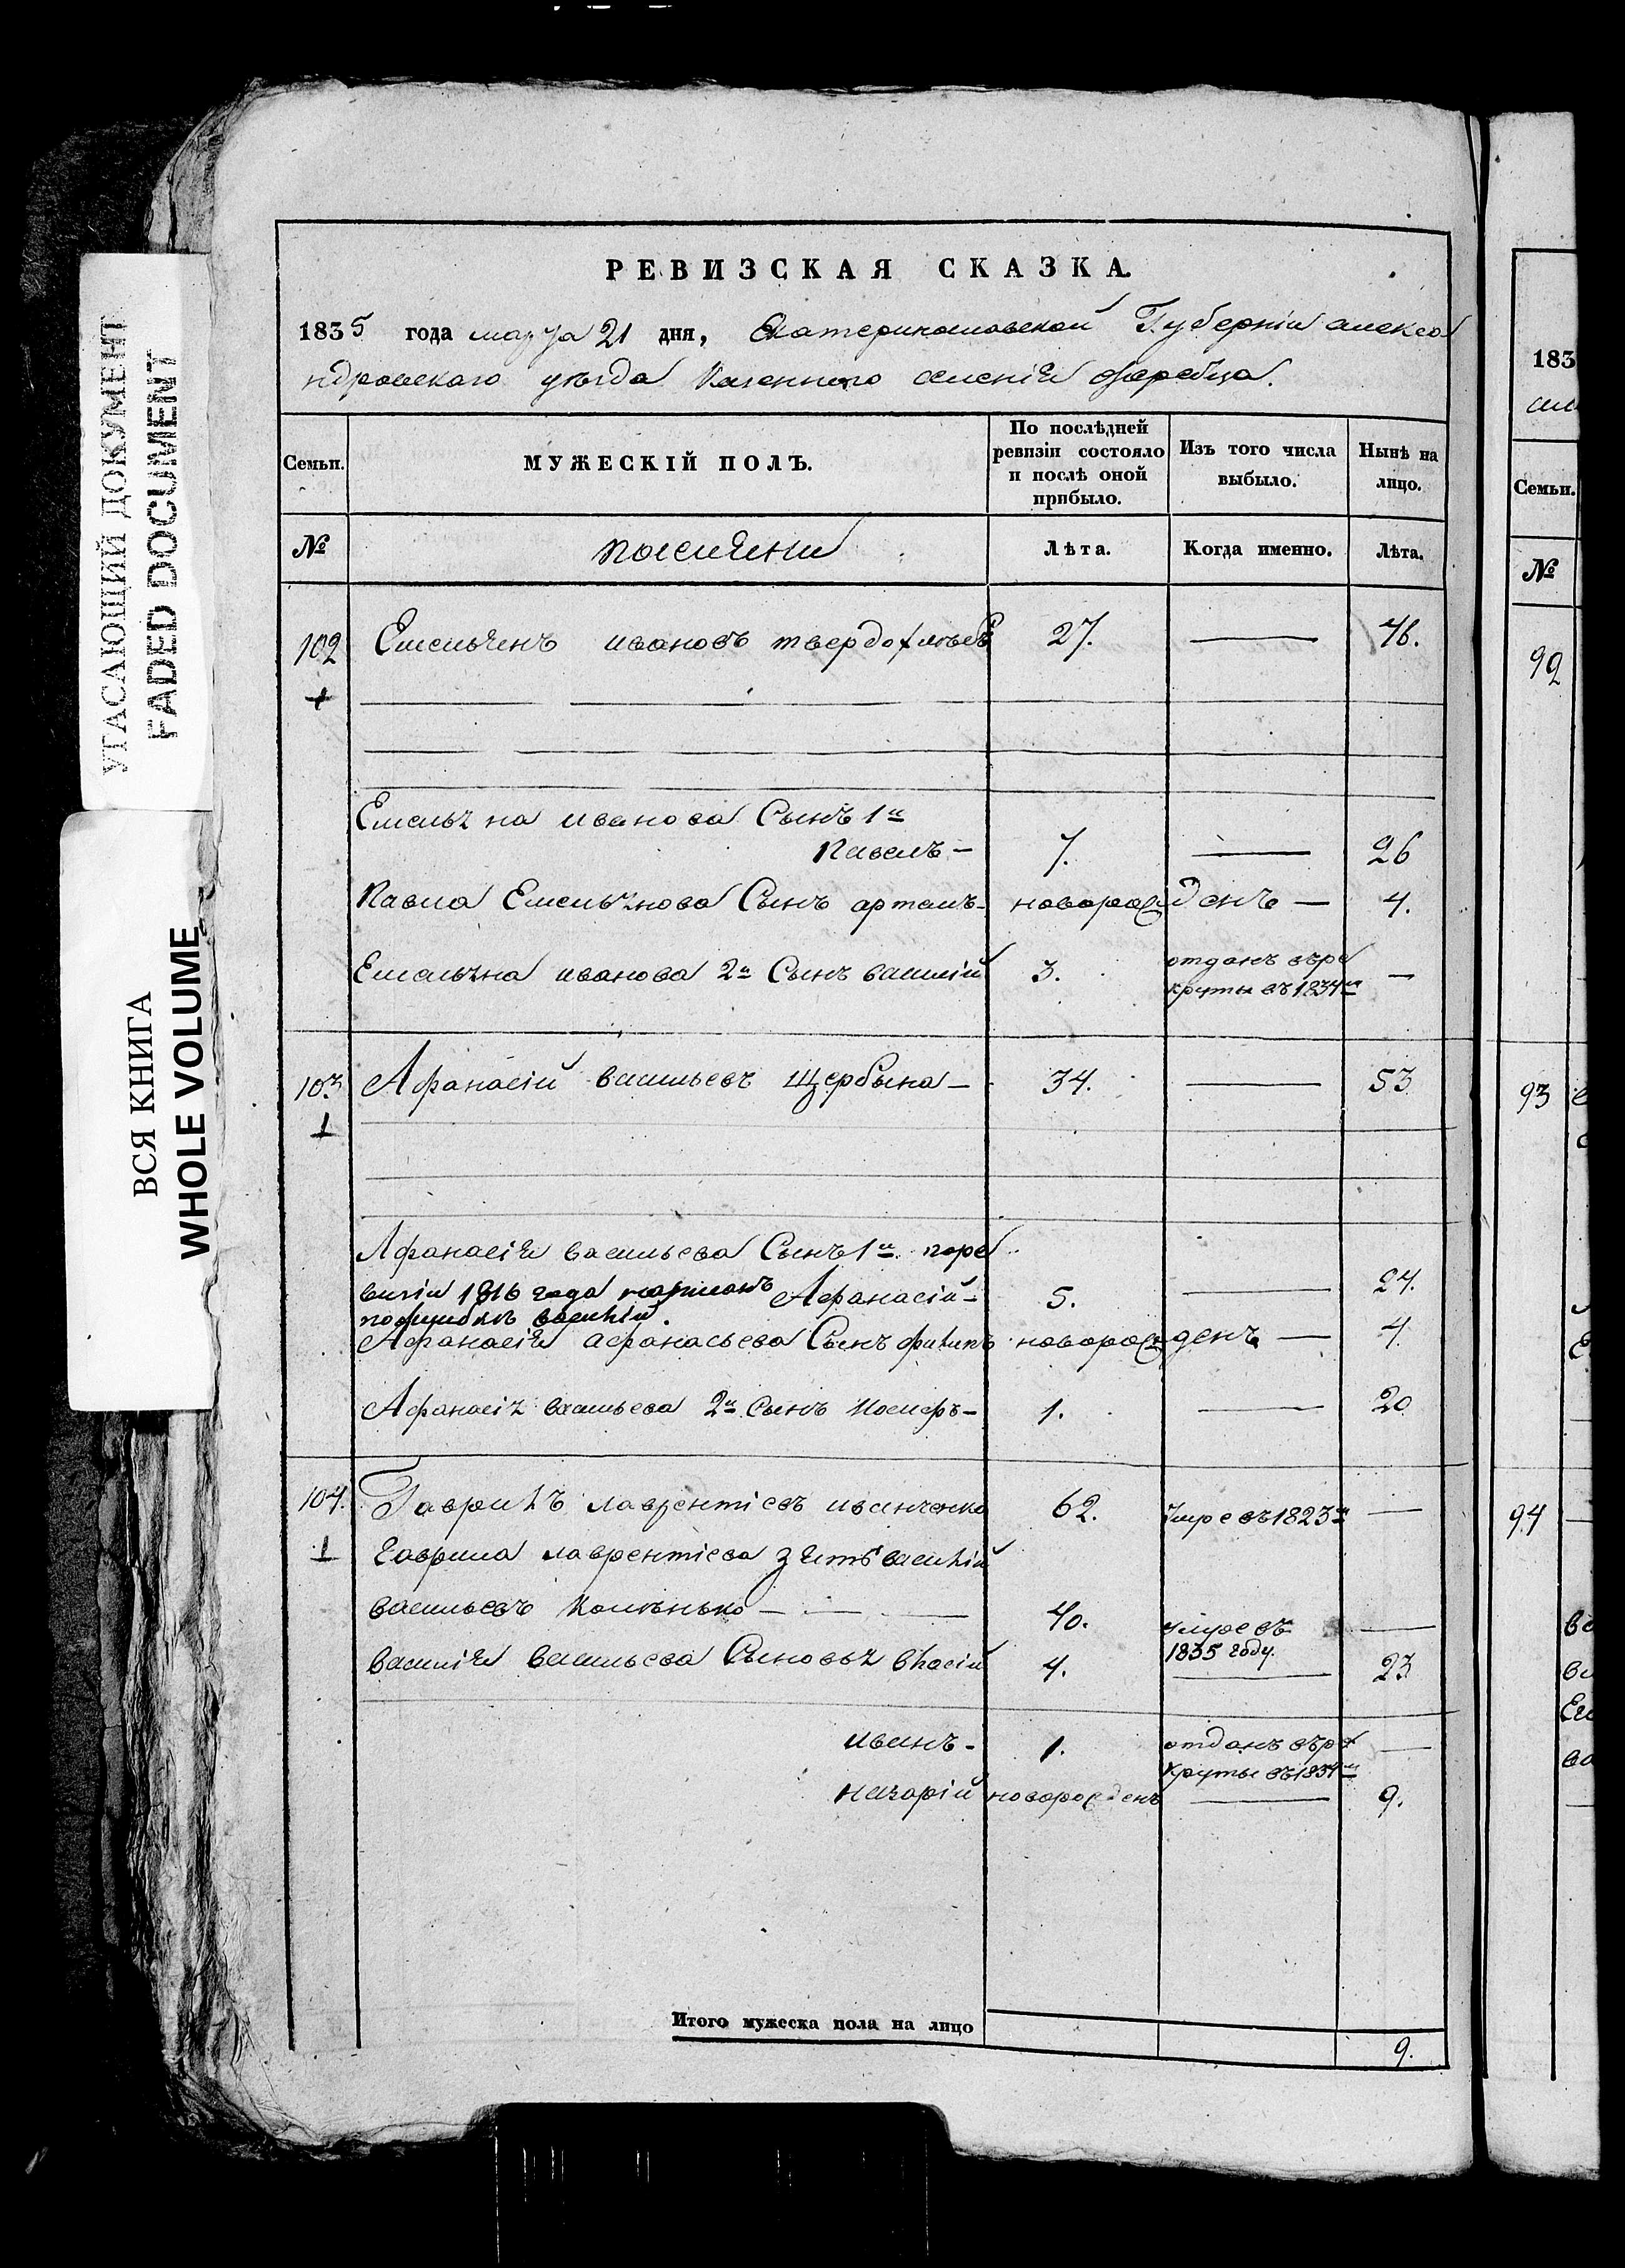 РЕВИЗСКАЯ СКАЗКА.
1835 года марта 21 дня, Екатеринославской Губерніи алекса
ндровского уѣзда казенного селенія жеребца.
Семьи.
МУЖЕСКІЙ ПОЛЪ.
По послѣдней ревизіи состояло и послѣ оной прибыло.
Изъ того числа выбыло.
Нынѣ на лицо.
№
поселяни
Лѣта.
Когда именно.
Лѣта.
102 Емельянъ ивановъ твердохлѣбъ 27. — 46.
Емельяна иванова Сынъ 1й
Павелъ — 7. — 26
Павла Емельянова Сынъ артемъ — новорожденъ — 4.
Емельяна иванова 2й Сынъ василій 3. отданъ въре
круты въ 1834м —
103 Афанасій васильевъ Щербына — 34. — 53
Афанасія васильева Сынъ 1й поре
визіи 1816 года написанъ Афанасій — 5. — 24.
поошибкѣ василій.
Афанасія афанасьева Сынъ филипъ новорожденъ — 4.
Афанасія васильева 2й Сынъ Иосифъ — 1. — 20
104. Гаврилъ лаврентіевъ иванченко 62. Умре въ 1823м —
гаврила лаврентіева зять василій
васильевъ Колѣнько — 40. умре въ —
1835 году.
василія васильева Сыновья власій 4. — 23
иванъ — 1. отданъ въре —
круты въ 1834м
назарій новорожденъ — 9.
Итого мужеска пола на лицо 9.
УГАСАЮЩИЙ ДОКУМЕНТ
FADED DOCUMENT
ВСЯ КНИГА
WHOLE VOLUME
183
Семьи.
№
92
93
94